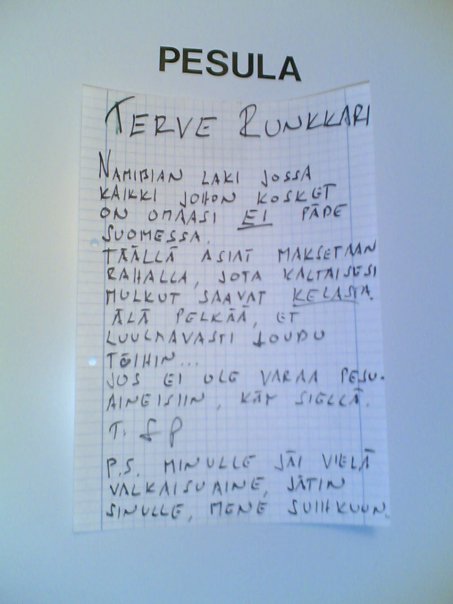 PESULA
TERVE RUNKKARI
NAMIBIAN LAKI JOSSA
KAIKKI JOHON KOSKET
ON OMAASI EI PÄDE
SUOMESSA.
TÄÄLLÄ ASIAT MAKSETAAN
RAHALLA, JOTA KALTAISESI
MULKUT SAAVAT KELASTA.
ÄLÄ PELKÄÄ, ET
LUULTAVASTI JOUDU
TÖIHIN...
JOS EI OLE VARAA PESU-
AINEISIIN, KÄY SIELLÄ.
T.
P.S. MINULLE JÄI VIELÄ
VALKAISUAINE, JÄTIN
SINULLE, MENE SUIHKUUN.